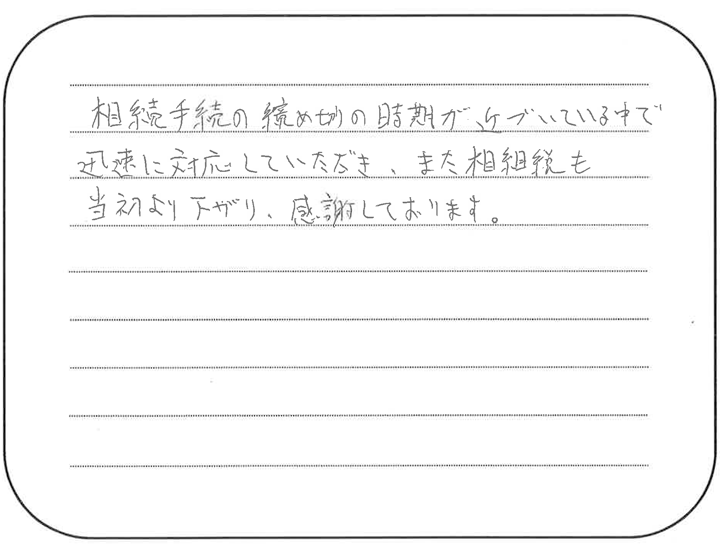 相続手続の締め切りの時期が近づいている中で
迅速に対応していただき、また相組税も
当初より下がり、感謝しております。